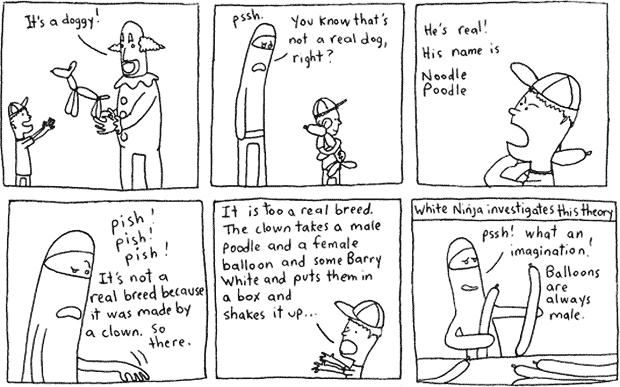 It's a doggy!
pssh.
You know that's
not a real dog,
right?
He's real!
His name is
Noodle
Poodle
pish!
pish!
pish!
It's not a
real breed because
it was made by
a clown. So
there.
It is too a real breed.
The clown takes a male
poodle and a female
balloon and some Barry
White and puts them in
a box and
shakes it up...
White Ninja investigates this theory
pssh! what an
imagination!
Balloons
are
always
male.